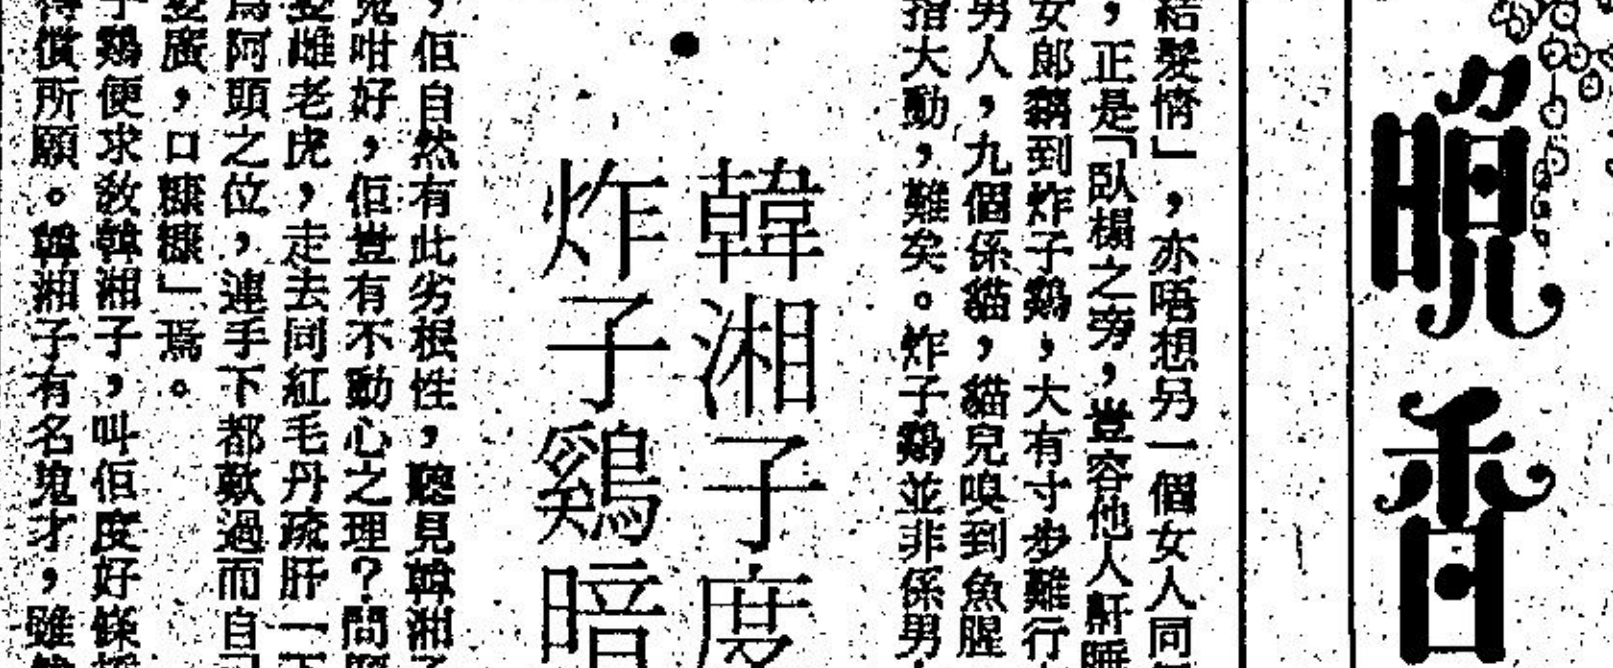 晚香
結髮情」，亦唔想另一個女人同
，正是「臥榻之旁，豈容他人鼾睡
女郎藕到炸子鷄，大有寸步難行
男人，九個係貓，貓兒嗅到魚腥
指大動，難矣。炸子鷄並非係男
韓湘子度
炸子鷄暗
，佢自然有此劣根性，聽見韓湘子
鬼咁好，佢豈有不動心之理？問
雌老虎，走去同紅毛丹疏肝一下
爲阿頭之位，連手下都歎過而自
廣，口糠糠」焉。
子鷄便求敎韓湘子，叫佢度好
得償所願。韓湘子有名鬼才，雖